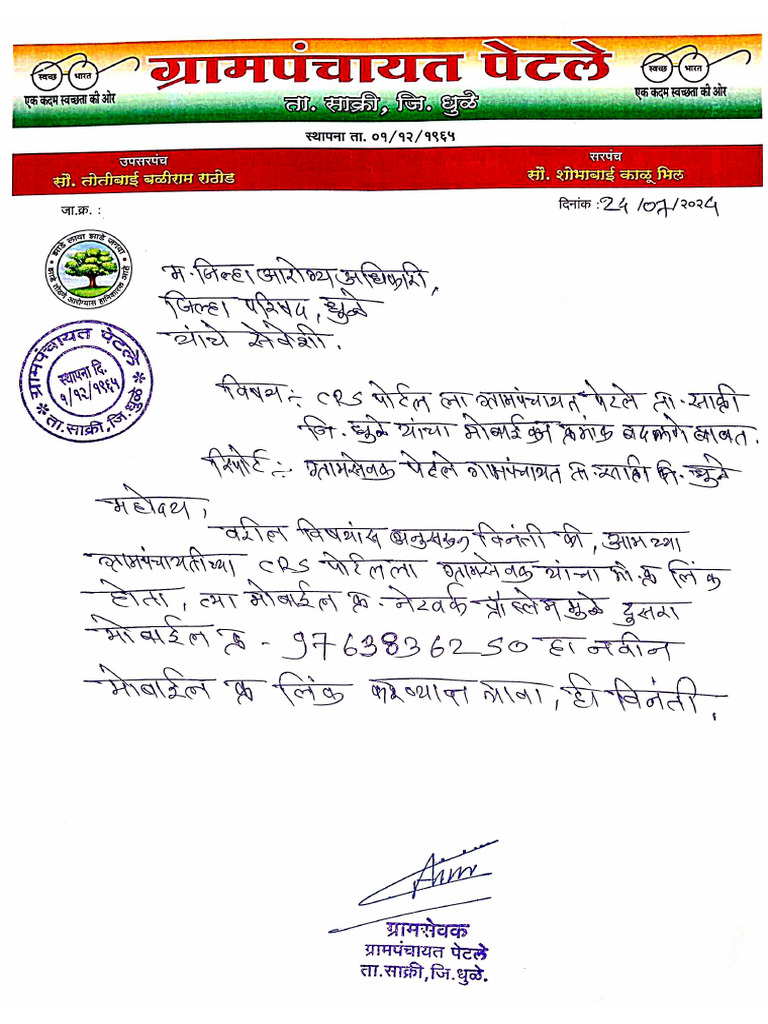 स्वच्छ भारत
एक कदम स्वच्छता की ओर
ग्रामपंचायत पेटले
स्वच्छ भारत
एक कदम स्वच्छता की ओर
ता. साक्री, जि. धुळे
स्थापना ता. ०१/१२/१९६५
उपसरपंच
सौ. तोतीबाई बळीराम राठोड
सरपंच
सौ. शोभाबाई काळू भिल
जा.क्र. :
दिनांक : 24/07/२०२4
झाडे लावा झाडे जगवा
झाडे तोडणे आरोग्यास हानिकारक आहे
म. जिल्हा आरोग्य अधिकारी,
जिल्हा परिषद, धुळे
यांचे सेवेशी.
ग्रामपंचायत पेटले
स्थापना दि.
१/१२/१९६५
ता. साक्री, जि. धुळे
विषय :- CRS पोर्टल ला ग्रामपंचायत पेटले ता. साक्री
जि. धुळे यांचा मोबाईल क्रमांक बदलणे बाबत.
रिपोर्ट :- ग्रामसेवक पेटले ग्रामपंचायत ता. साक्री जि. धुळे
महोदय,
वरील विषयांस अनुसरून विनंती की, आमच्या
ग्रामपंचायतीच्या CRS पोर्टलला ग्रामसेवक यांचा मो. क्र लिंक
होता, त्या मोबाईल क्र. नेटवर्क प्रॉब्लेम मुळे दुसरा
मोबाईल क्र - 9763836250 हा नवीन
मोबाईल क्र लिंक करण्यात यावा, ही विनंती.
ग्रामसेवक
ग्रामपंचायत पेटले
ता.साक्री,जि.धुळे.